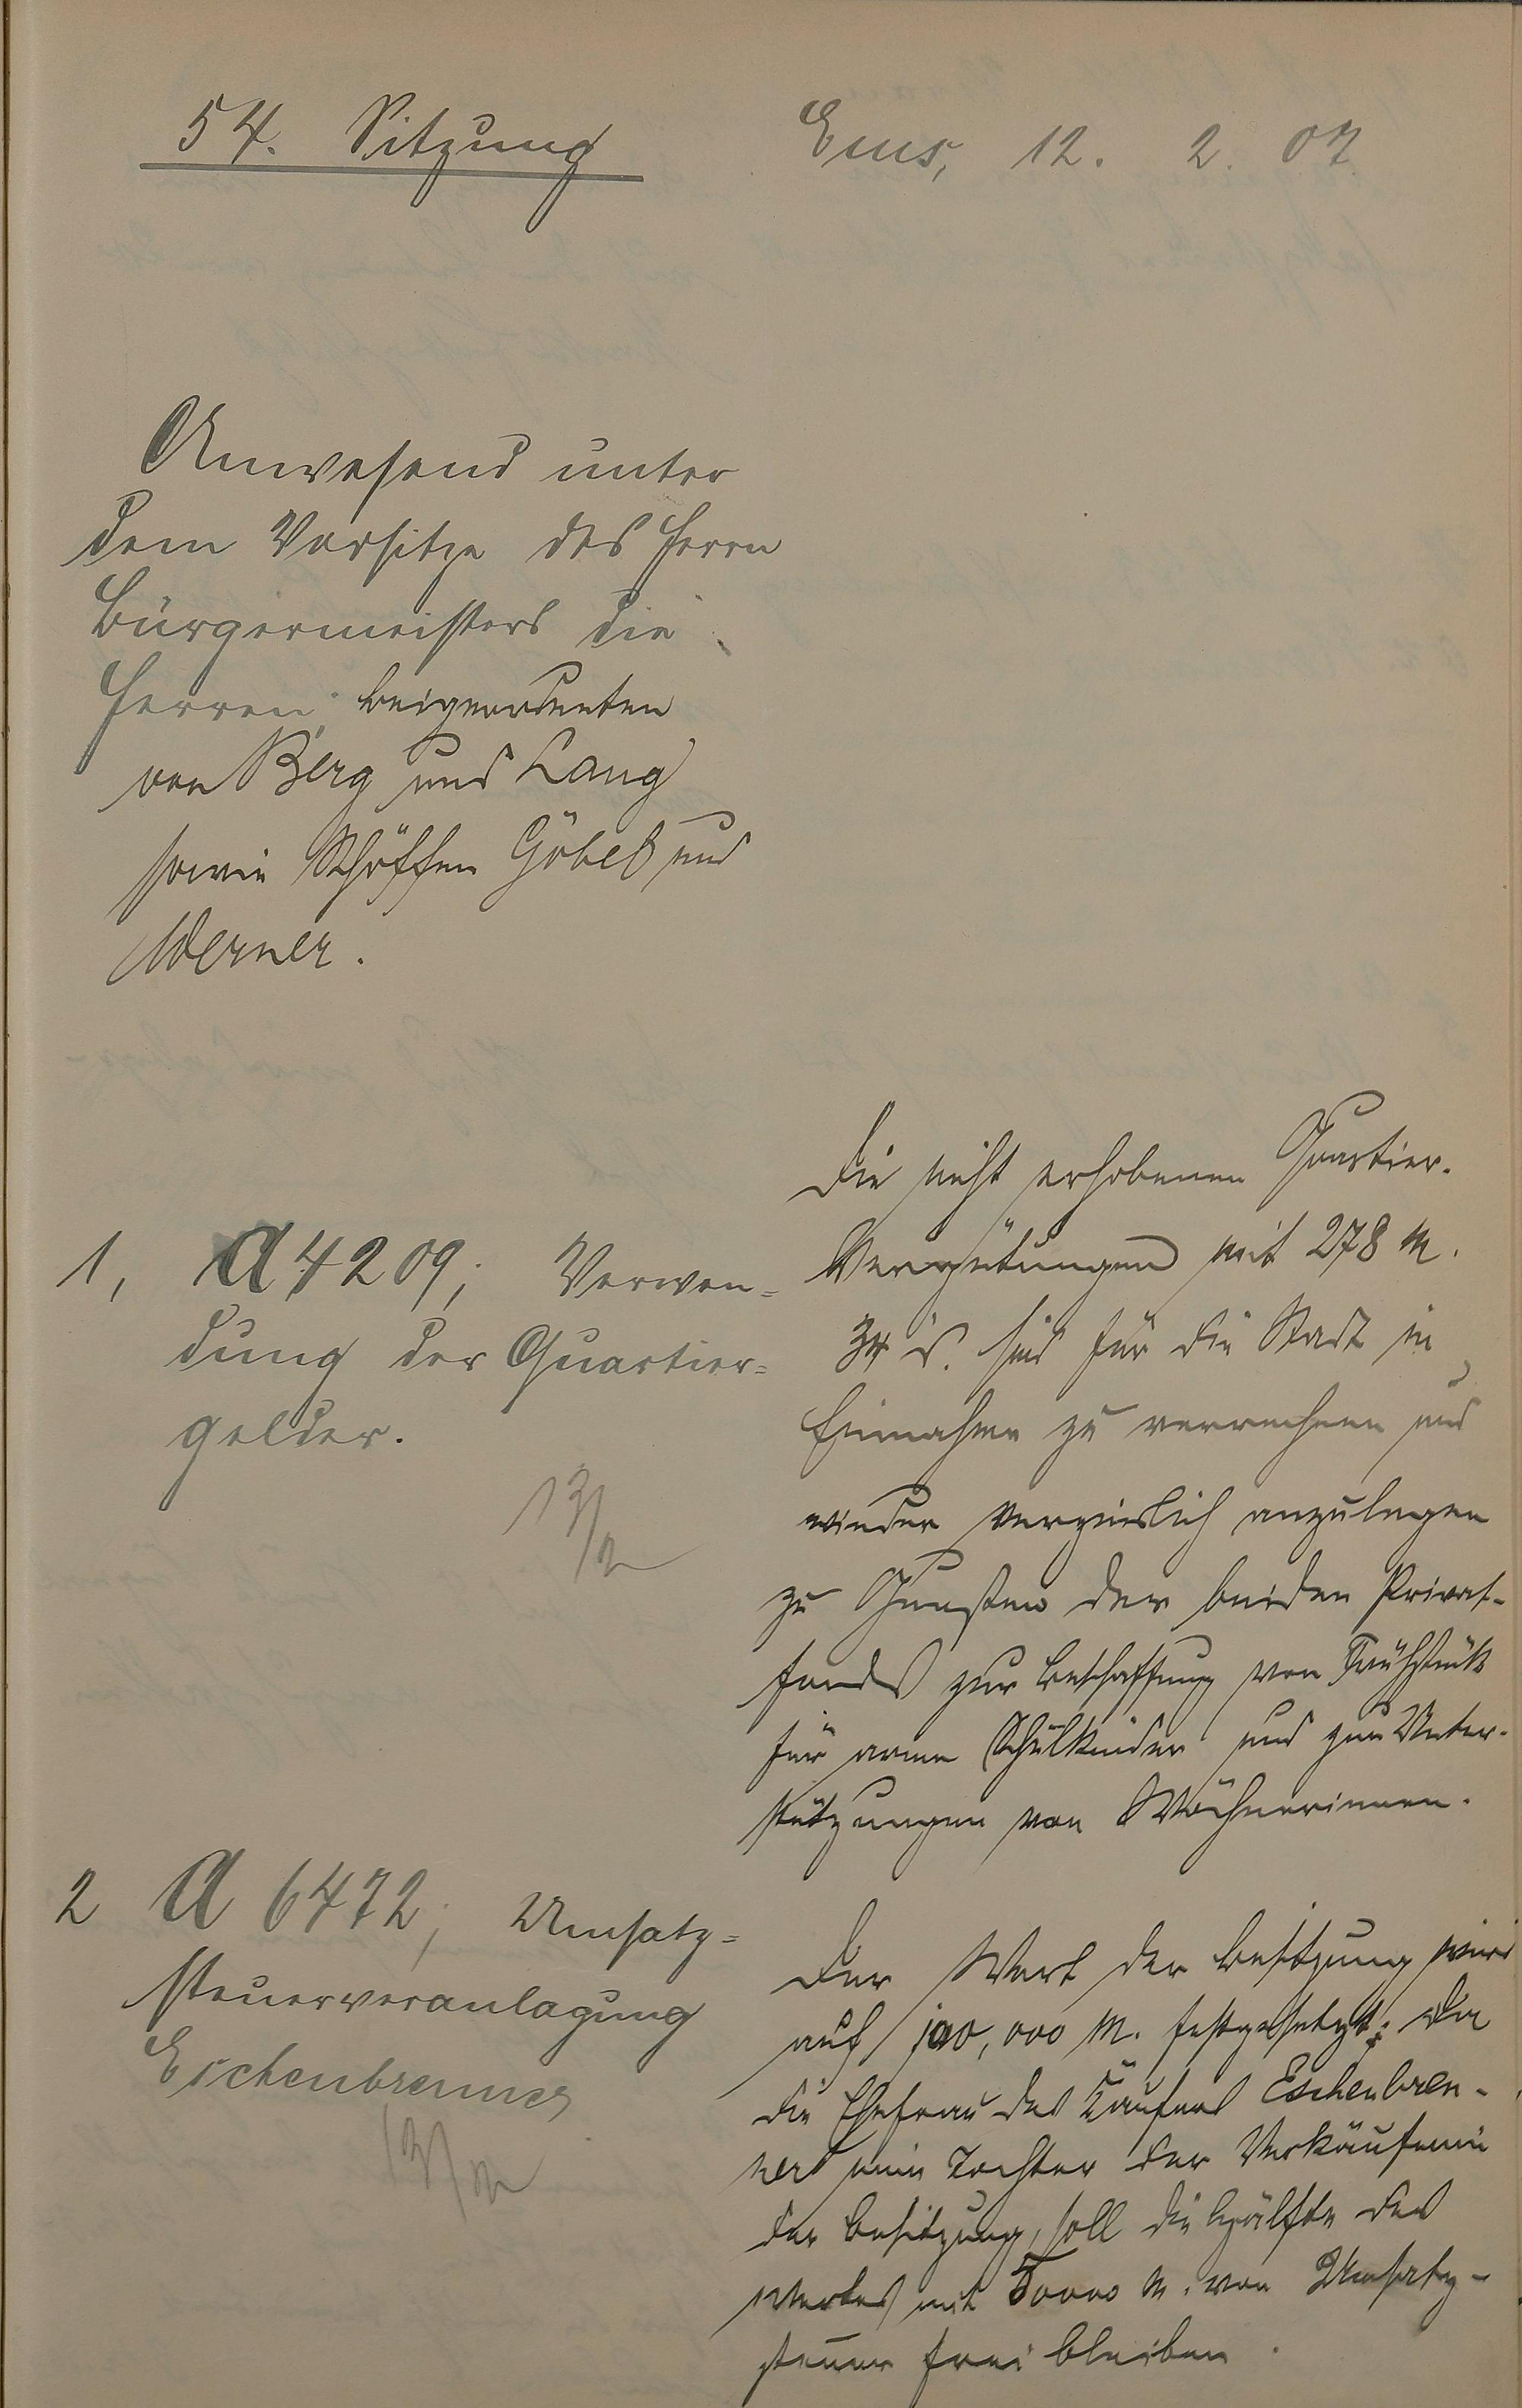 54. Sitzung
Ems, 12. 2. 07
Anwesend unter
dem Vorsitze des Herrn
Bürgermeisters die
Herren Beigeordneten
von Berg und Lang
sowie Schöffen Göbel und
Werner.
1, A 4209; Verwen=
dung der Quartier=
gelder.
13/2
Die nicht erhobenen Quartier-
Vergütungen mit 278 M.
sind für die Stadt in
Einnahme zu verrechnen und
wieder verzinslich anzulegen
zu Gunsten der beiden Privat-
fonds zur Beschaffung von Frühstück
für arme Schulkinder und zur Unter-
stützungen von Wöchnerinnen.
2 A 6472; Umsatz=
steuerveranlagung
Eschenbrenner
13/2
Der Wert der Besitzung wird
auf 100,000 M. festgesetzt; da
die Ehefrau des Käufers Eschenbren-
ners eine Tochter der Verkäuferin
der Besitzung, soll die Hälfte des
Wertes mit 50000 M. von Umsatz-
steuer frei bleiben.